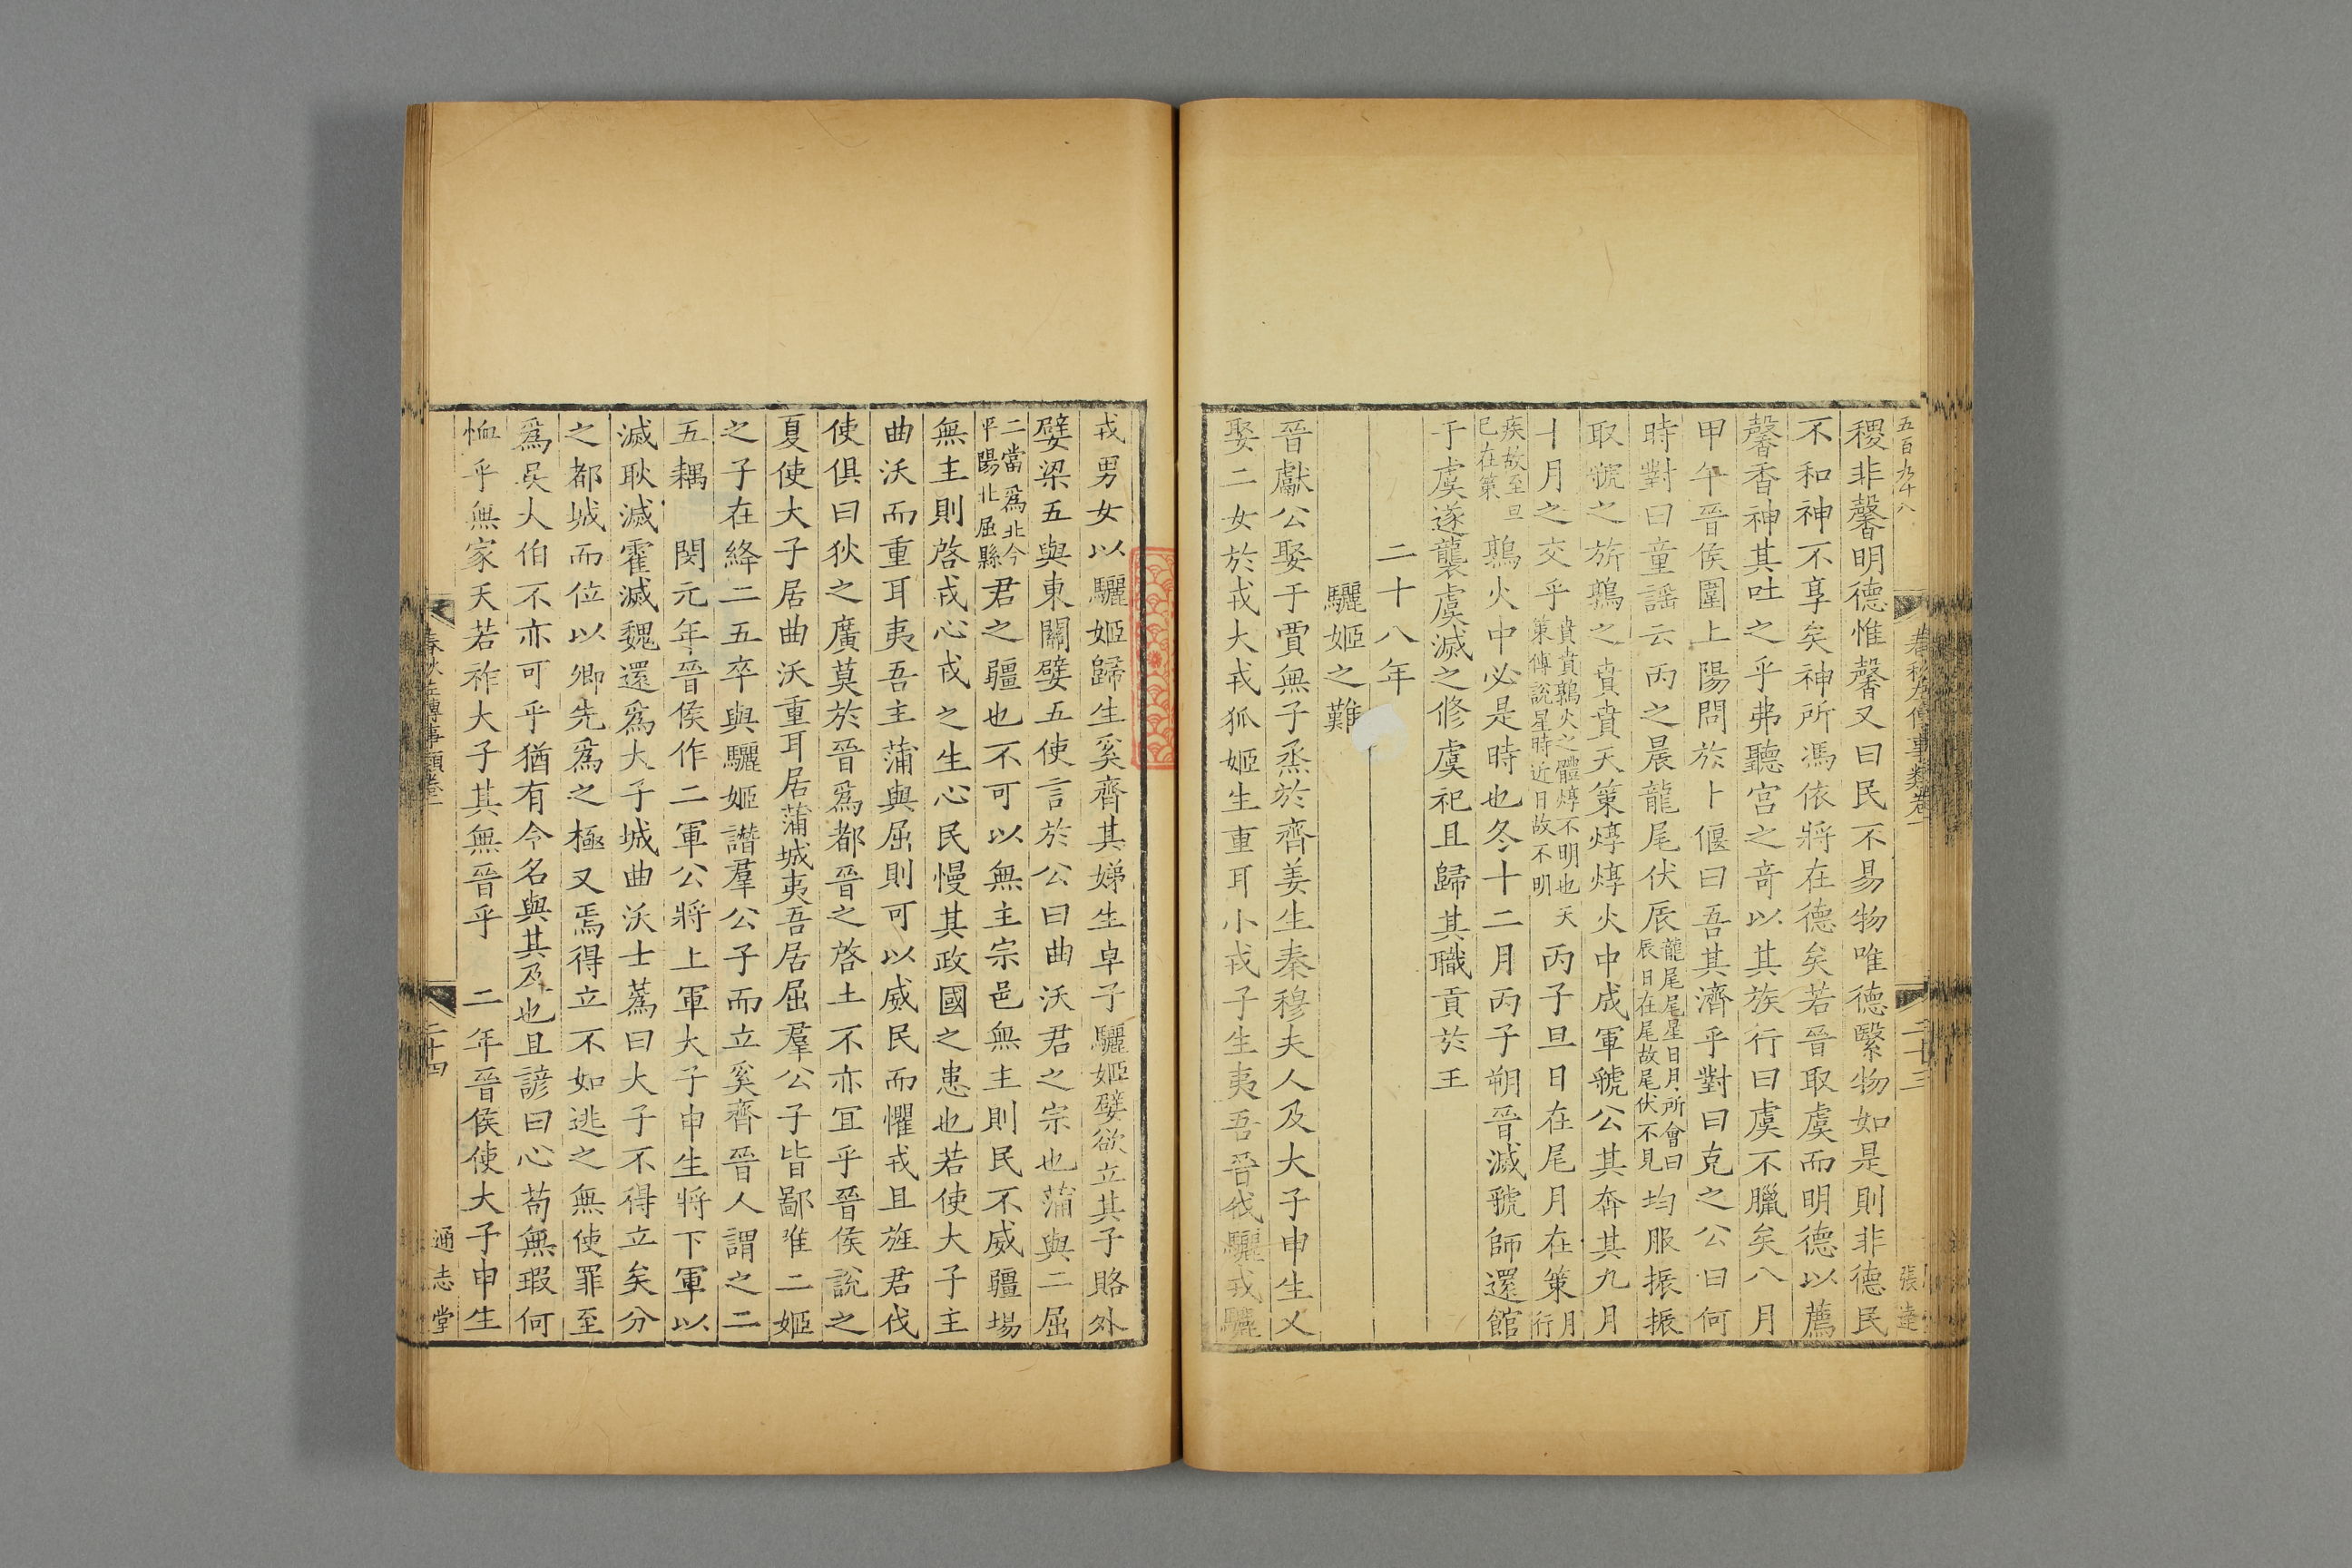 五百九十八
春秋左傳事類卷一
二十三
張達
稷非馨明德惟馨又曰民不易物唯德繄物如是則非德民
不和神不享矣神所馮依將在德矣若晉取虞而明德以薦
馨香神其吐之乎弗聽宮之奇以其族行曰虞不臘矣八月
甲午晉侯圍上陽問於卜偃曰吾其濟乎對曰克之公曰何
時對曰童謠云丙之晨龍尾伏辰龍尾尾星日月所會曰辰日在尾故尾伏不見均服振振
取虢之旂鶉之賁賁天策焞焞火中成軍虢公其奔其九月
十月之交乎賁賁鶉火之體焞不明也天策傅說星時近日故不明丙子旦日在尾月在策月行
疾故至旦已在策鶉火中必是時也冬十二月丙子朔晉滅虢師還館
于虞遂襲虞滅之修虞祀且歸其職貢於王
二十八年
驪姬之難
晉獻公娶于賈無子烝於齊姜生秦穆夫人及大子申生又
娶二女於戎大戎狐姬生重耳小戎子生夷吾晉伐驪戎驪
戎男女以驪姬歸生奚齊其娣生卓子驪姬嬖欲立其子賂外
嬖梁五與東關嬖五使言於公曰曲沃君之宗也蒲與二屈
二當為北今平陽北屈縣君之疆也不可以無主宗邑無主則民不威疆埸
無主則啓戎心戎之生心民慢其政國之患也若使大子主
曲沃而重耳夷吾主蒲與屈則可以威民而懼戎且旌君伐
使俱曰狄之廣莫於晉爲都晉之啓土不亦宜乎晉侯說之
夏使大子居曲沃重耳居蒲城夷吾居屈羣公子皆鄙唯二姬
之子在絳二五卒與驪姬譖羣公子而立奚齊晉人謂之二
五耦　閔元年晉侯作二軍公將上軍大子申生將下軍以
滅耿滅霍滅魏還爲大子城曲沃士蔿曰大子不得立矣分
之都城而位以卿先爲之極又焉得立不如逃之無使罪至
爲吳大伯不亦可乎猶有令名與其及也且諺曰心苟無瑕何
恤乎無家天若祚大子其無晉乎　二年晉侯使大子申生
春秋左傳事類卷一
二十四
通志堂